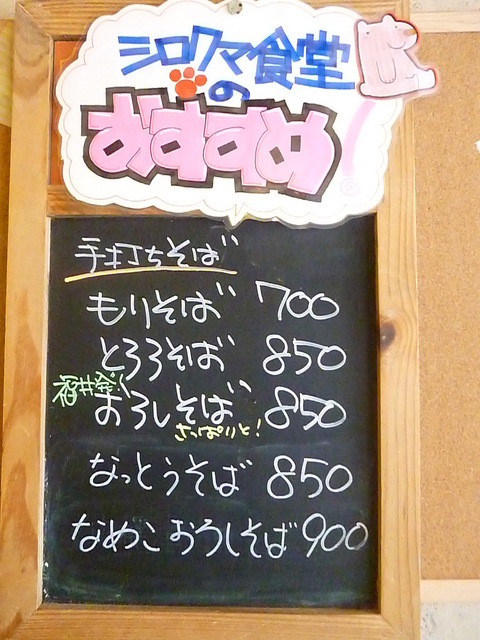 シロクマ食堂
の
おすすめ!
手打ちそば
もりそば 700
とろろそば 850
福井発!
おろしそば 850
さっぱりと!
なっとうそば 850
なめこおろしそば 900